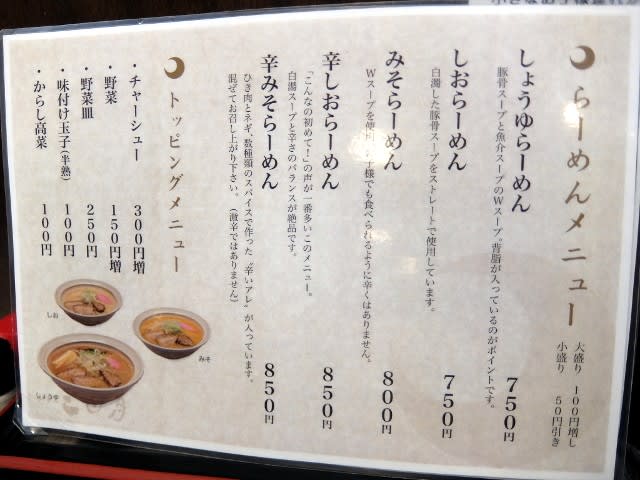 らーめんメニュー
大盛り 100円増し
小盛り 50円引き
しょうゆらーめん 750円
豚骨スープと魚介スープのWスープ。背脂が入っているのがポイントです。
しおらーめん 750円
白濁した豚骨スープをストレートで使用しています。
みそらーめん 800円
Wスープを使用。
子様でも食べられるように辛くはありません。
辛しおらーめん 850円
「こんなの初めて!」の声が一番多いこのメニュー。
白濁スープと辛さのバランスが絶品です。
辛みそらーめん 850円
ひき肉とネギ、数種類のスパイスで作った“辛いアレ”が入っています。
混ぜてお召し上がり下さい。(激辛ではありません)
トッピングメニュー
・チャーシュー 300円増
・野菜 150円増
・野菜皿 250円
・味付け玉子(半熟) 100円
・からし高菜 100円
しお
みそ
しょうゆ